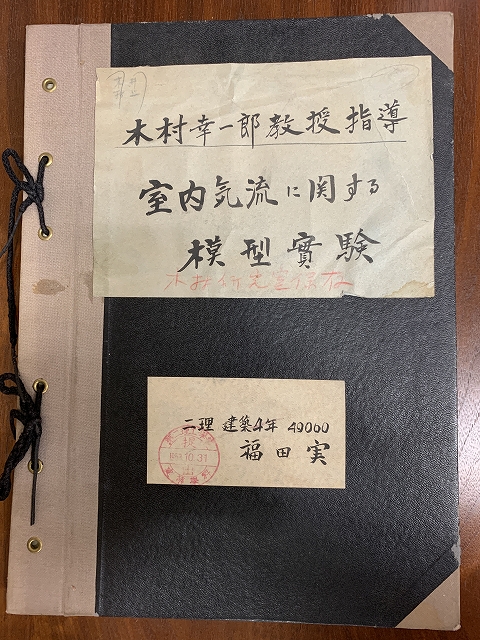 木村幸一郎教授指導
室内気流に関する
模型實験
木村研究室保存
二理 建築4年 49000
福田実
10.31